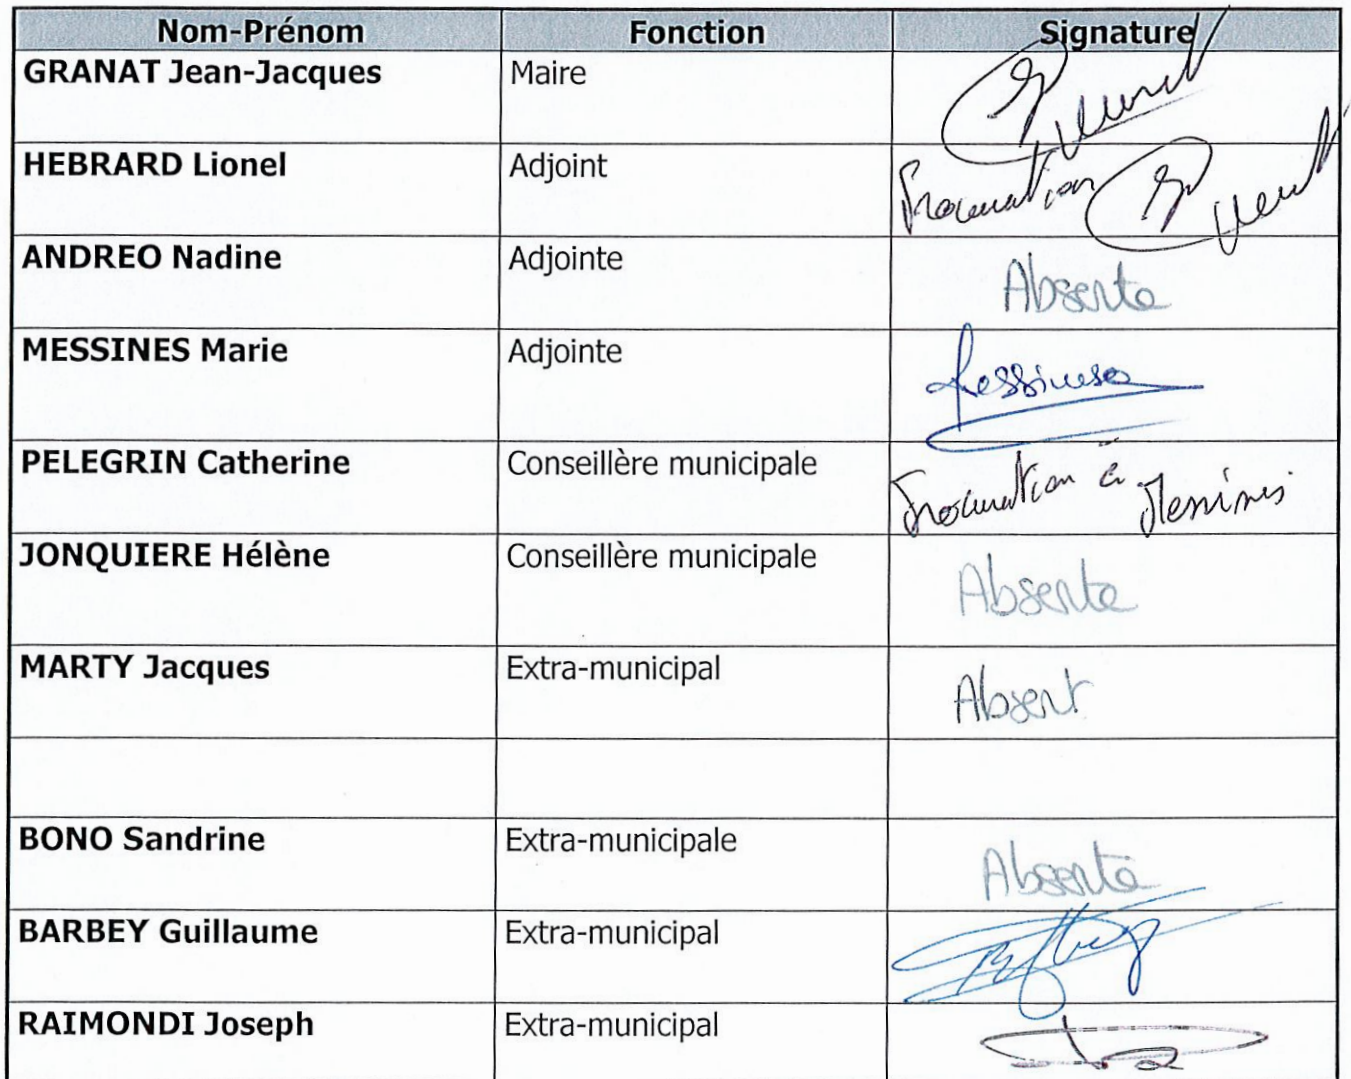 Nom-Prénom Fonction Signature
GRANAT Jean-Jacques Maire
HEBRARD Lionel Adjoint Procuration
ANDREO Nadine Adjointe Absente
MESSINES Marie Adjointe Messines
PELEGRIN Catherine Conseillère municipale Procuration à Messines
JONQUIERE Hélène Conseillère municipale Absente
MARTY Jacques Extra-municipal Absent
BONO Sandrine Extra-municipale Absente
BARBEY Guillaume Extra-municipal
RAIMONDI Joseph Extra-municipal